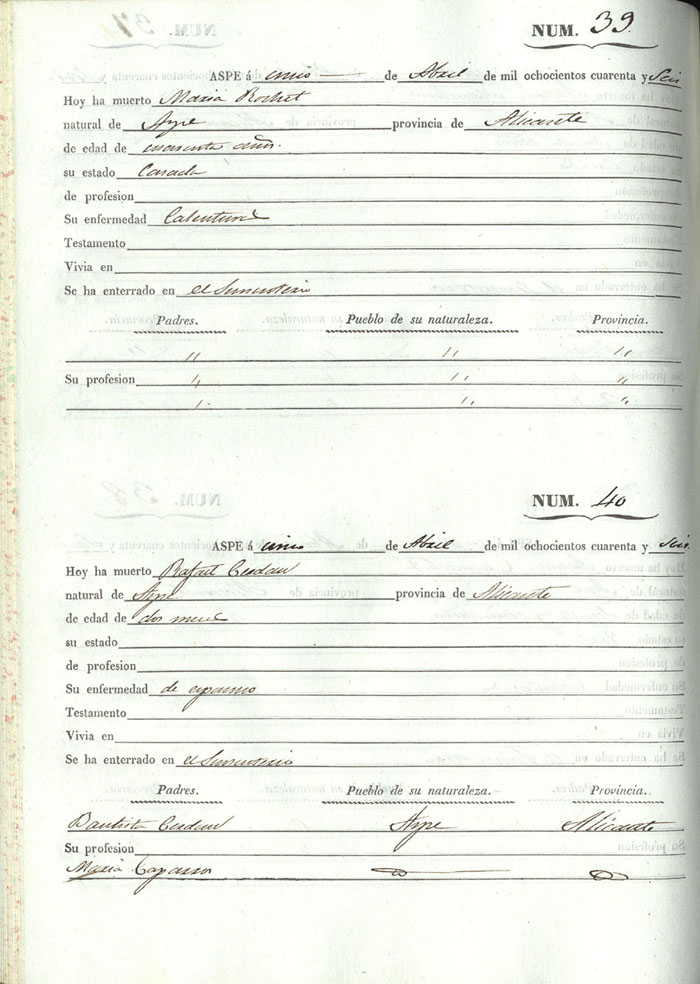 NUM. 39
ASPE á de Abril de mil ochocientos cuarenta y Seis
Hoy ha muerto Maria
natural de Aspe provincia de Alicante
de edad de cuarenta años.
su estado Casada
de profesion
Su enfermedad Calentura
Testamento
Vivia en
Se ha enterrado en el
Padres. Pueblo de su naturaleza. Provincia.
" " "
Su profesion " " "
" " "
NUM. 40
ASPE á de Abril de mil ochocientos cuarenta y Seis
Hoy ha muerto Rafael Cerdan
natural de Aspe provincia de Alicante
de edad de dos meses
su estado
de profesion
Su enfermedad de espasmo
Testamento
Vivia en
Se ha enterrado en el
Padres. Pueblo de su naturaleza. Provincia.
Bautista Cerdan Aspe Alicante
Su profesion
Maria